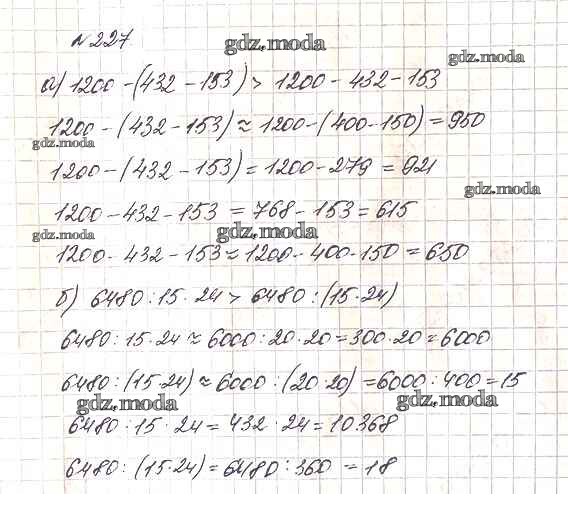 №227.
gdz.moda
gdz.moda
а) 1200-(432-153) > 1200-432-153
1200-(432-153)≈1200-(400-150)=950
gdz.moda
1200-(432-153)=1200-279=921
gdz.moda
1200-432-153=768-153=615
gdz.moda
gdz.moda
1200-432-153≈1200-400-150=650
б) 6480:15·24 > 6480:(15·24)
6480:15·24≈6000:20·20=300·20=6000
6480:(15·24)≈6000:(20·20)=6000:400=15
gdz.moda
gdz.moda
6480:15·24=432·24=10368
6480:(15·24)=6480:360=18